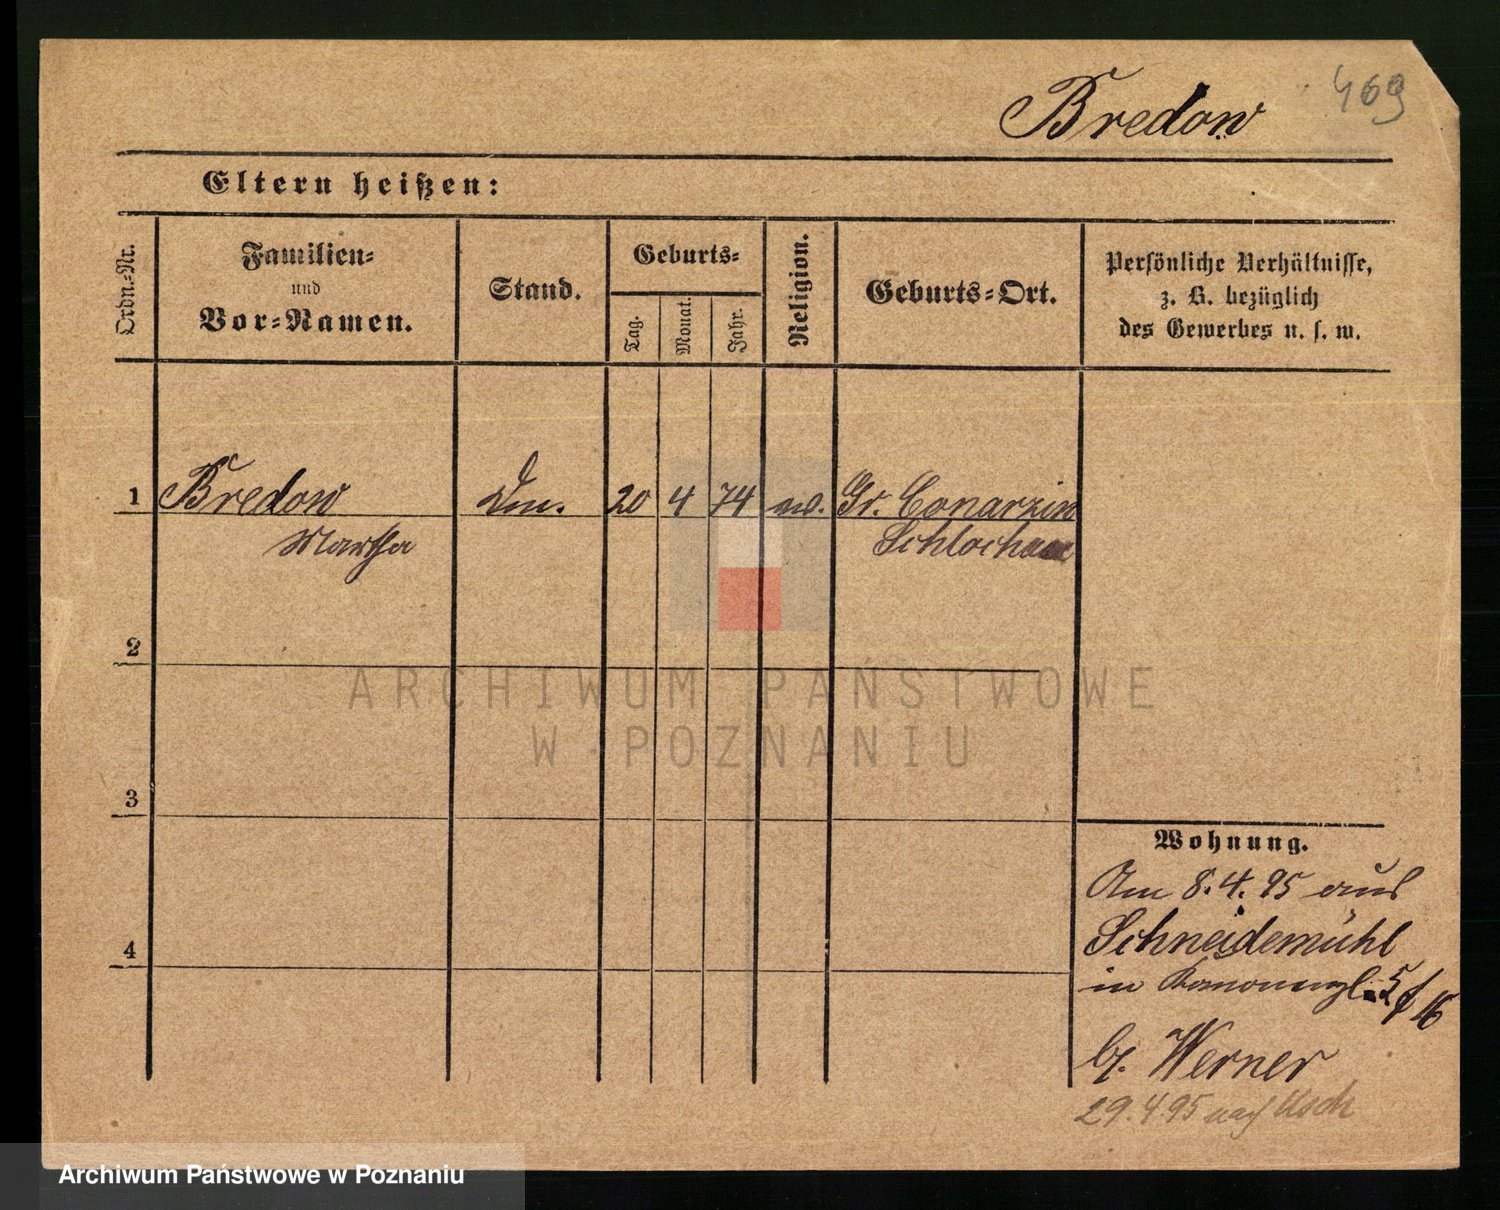 469
Bredow
Eltern heißen:
Ordn.-Nr.
Familien-
und
Vor-Namen.
Stand.
Geburts-
Tag.
Monat.
Jahr.
Religion.
Geburts-Ort.
Persönliche Verhältnisse,
z. B. bezüglich
des Gewerbes u. s. w.
1
Bredow
20
4
74
Gr. Conarzin
Martha
Schlochau
2
ARCHIWUM PAŃSTWOWE
W POZNANIU
3
Wohnung.
Am 8.4.95 aus
Schneidemühl
4
in
b/. Werner
29.4.95 nach Usch
Archiwum Państwowe w Poznaniu